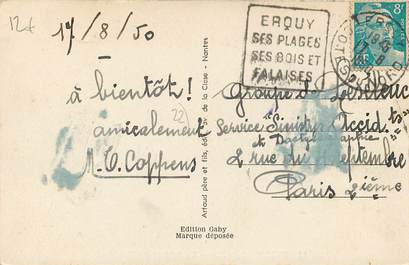 12f
17/8/50
ERQUY
SES PLAGES
SES BOIS ET
FALAISES
8F
à bientôt!
amicalement
M. C. Coppens
22
Groupe de
Service "Sinistres Accid.ts"
et Dactylographie
2 rue du 4 septembre
Paris 2ième
Artaud père et fils, éd. de la Close - Nantes
Edition Gaby
Marque déposée